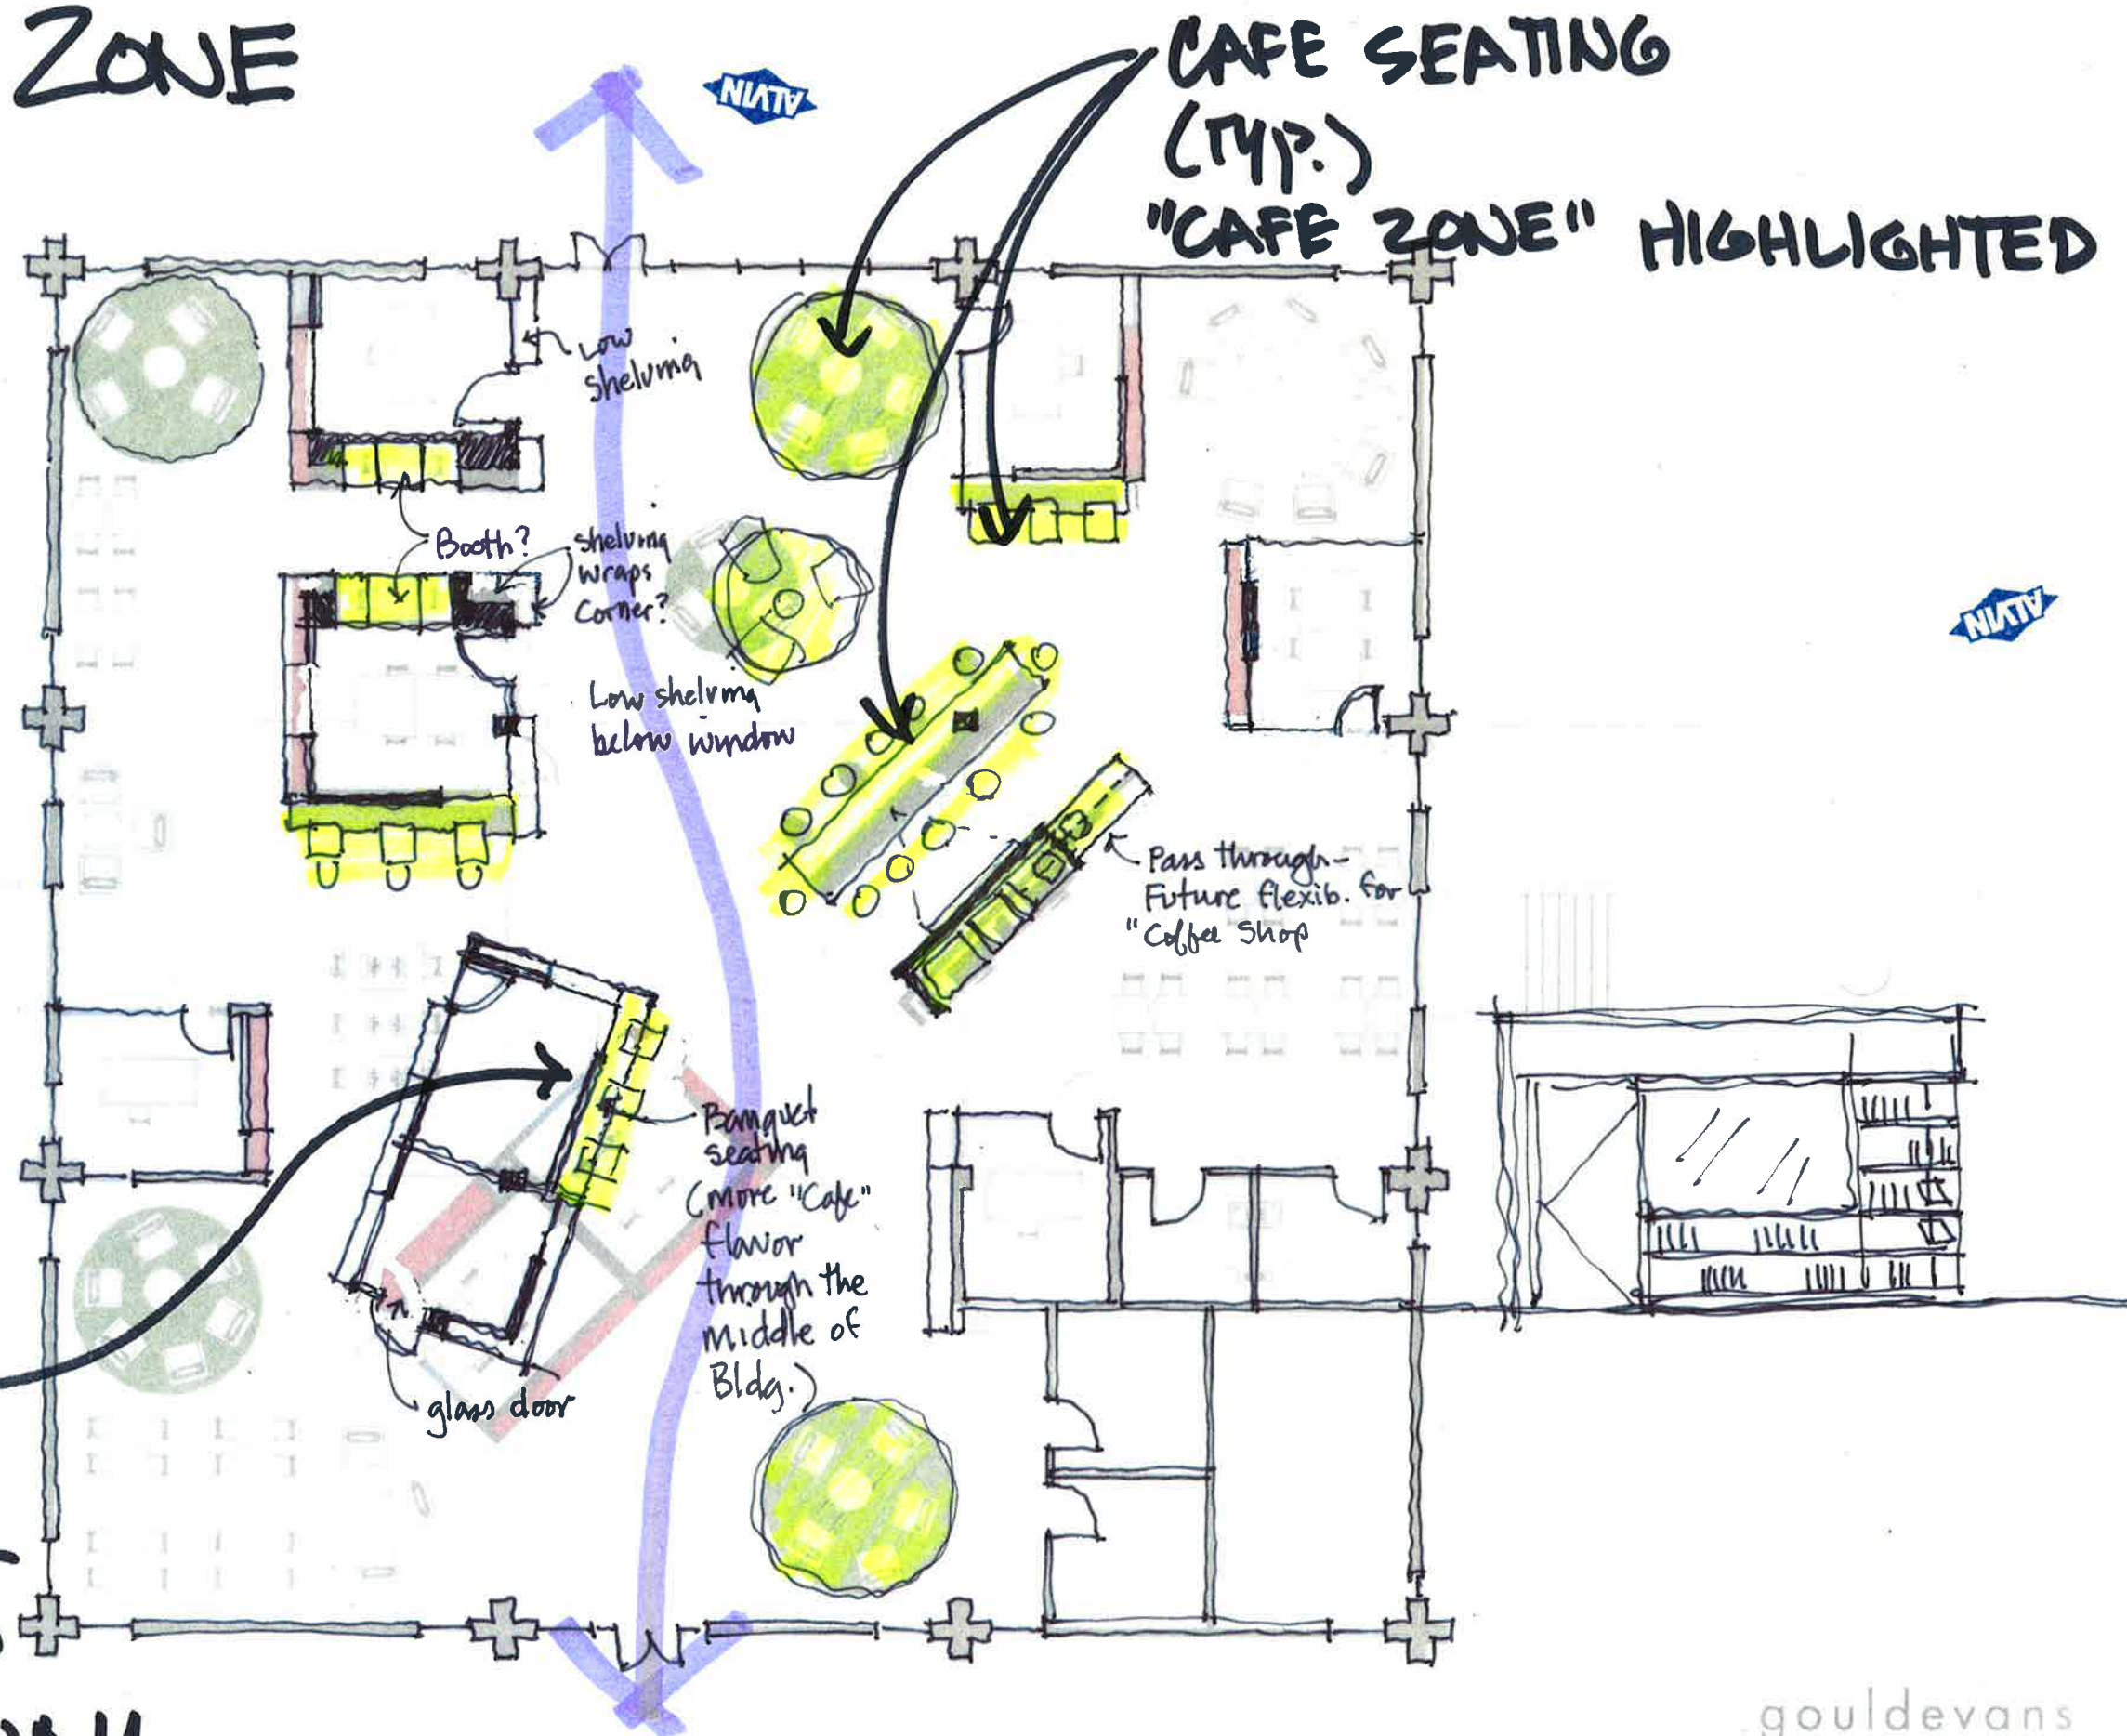 ZONE
ALVIN
CAFE SEATING
(TYP.)
"CAFE ZONE" HIGHLIGHTED
Low
shelving
Booth?
shelving
wraps
corner?
Low shelving
below window
ALVIN
Pass through-
Future flexib. for
"Coffee Shop
Banquet
seating
(more "Cafe"
flavor
through the
middle of
Bldg.)
glass door
gouldevans